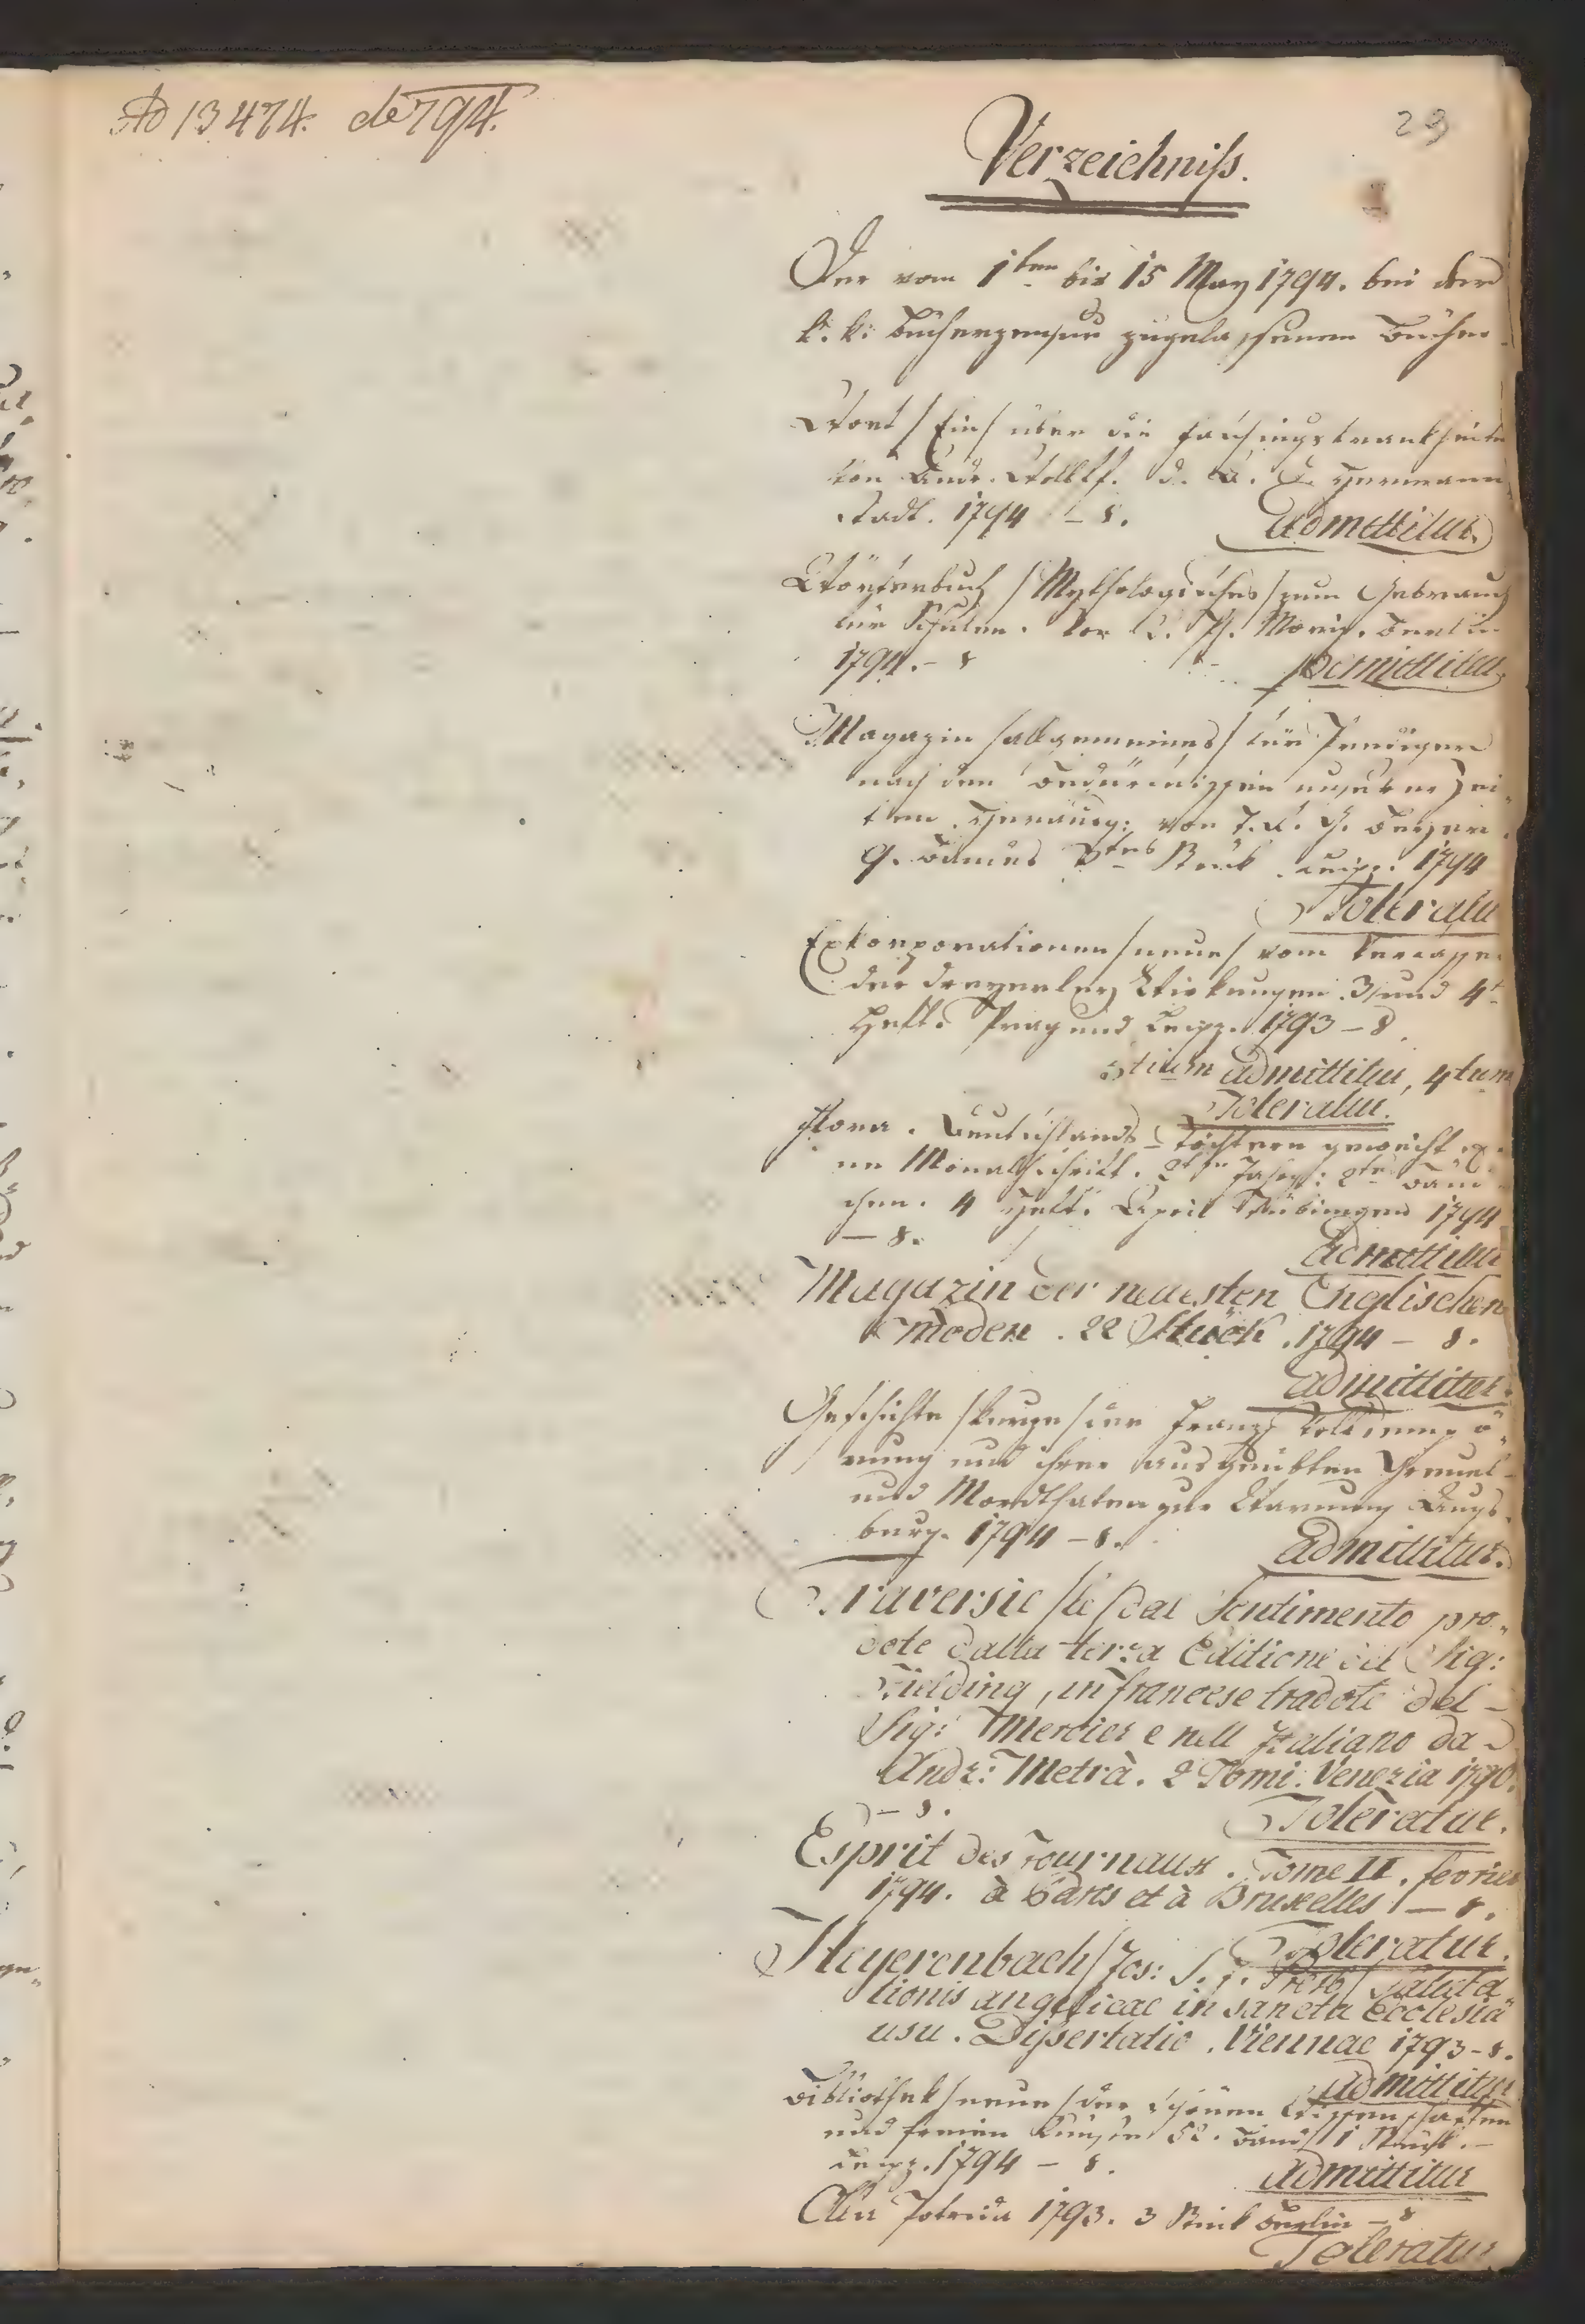 Ad 13474. de 794.
29
Verzeichniß.
Der vom 1ten bis 15 May 1794. bei der
k. k. Bücherzensur zugelassenen Bücher
Wort /Ein/ über die
von Andr. Wolff. d. A. D. Hermann
stadt. 1794 – 8. admittitur.
Wörterbuch /Mythologisches/ zum Gebrauch
für Schulen. von C. Ph. Moriz. Berlin
1794. – 8 permittitur
Magazin /allgemeines/ für Prediger
nach den Bedürfnissen unserer Zei„
ten. Herausg: von J. R. G. Beyer.
9. Bandes 3tes Stück Leipz. 1794
Toleratur
Exkorporationen /neue/ vom Verfasser
der dreyerley Wirkungen. 3 und 4t
Heft. Prag und Leipz. 1793 – 8.
3tium admittitur, 4tum
Toleratur.
Flora. Deutschlands Töchtern geweiht ei„
ne Monatschrift. 2ter Jahrg: 2tes Bänd
chen. 4 Heft. April Tübingen 1794
– 8. admittitur
Magazin der neuesten Englischen
moden. 22 Stück. 1794 – 8.
admittitur.
Geschichte /kurze/ der Franz: Volks
rung und ihrer ausgeübten Greuel
und Mordthaten zur Warnung Augs„
burg. 1794 – 8. admittitur.
Traversie /le/ dal Sentimento pro„
dote dalla terza Editione del Sig:
Fielding, in francese tradote del –
Sig: Mercier e nell Italiano da
Andr: Metrà. 2 Tomi. Venezia 1790.
– 8. Toleratur.
Esprit des Journaux. Tome II. fevrier
1794. à Paris et à Bruxelles – 8.
Toleratur.
Heyerenbach /Jos: S. J. Presb/ Saluta„
tionis angelicae in sancta Ecclesia
usu. Dissertatio. Viennae 1793 – 8.
admittitur
Bibliothek /neue/ der schönen Wissenschaften
und freien Künste 52. Band 1 Stück. –
Leipz. 1794 – 8. admittitur
Olla Potrida 1793. 3 Stück Berlin – 8
Toleratur